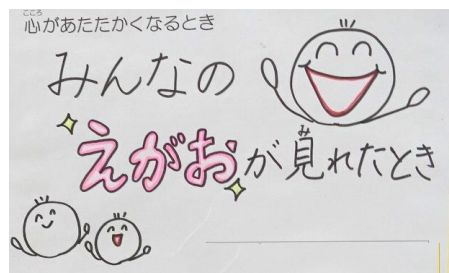 心があたたかくなるとき
みんなの
えがおが見れたとき